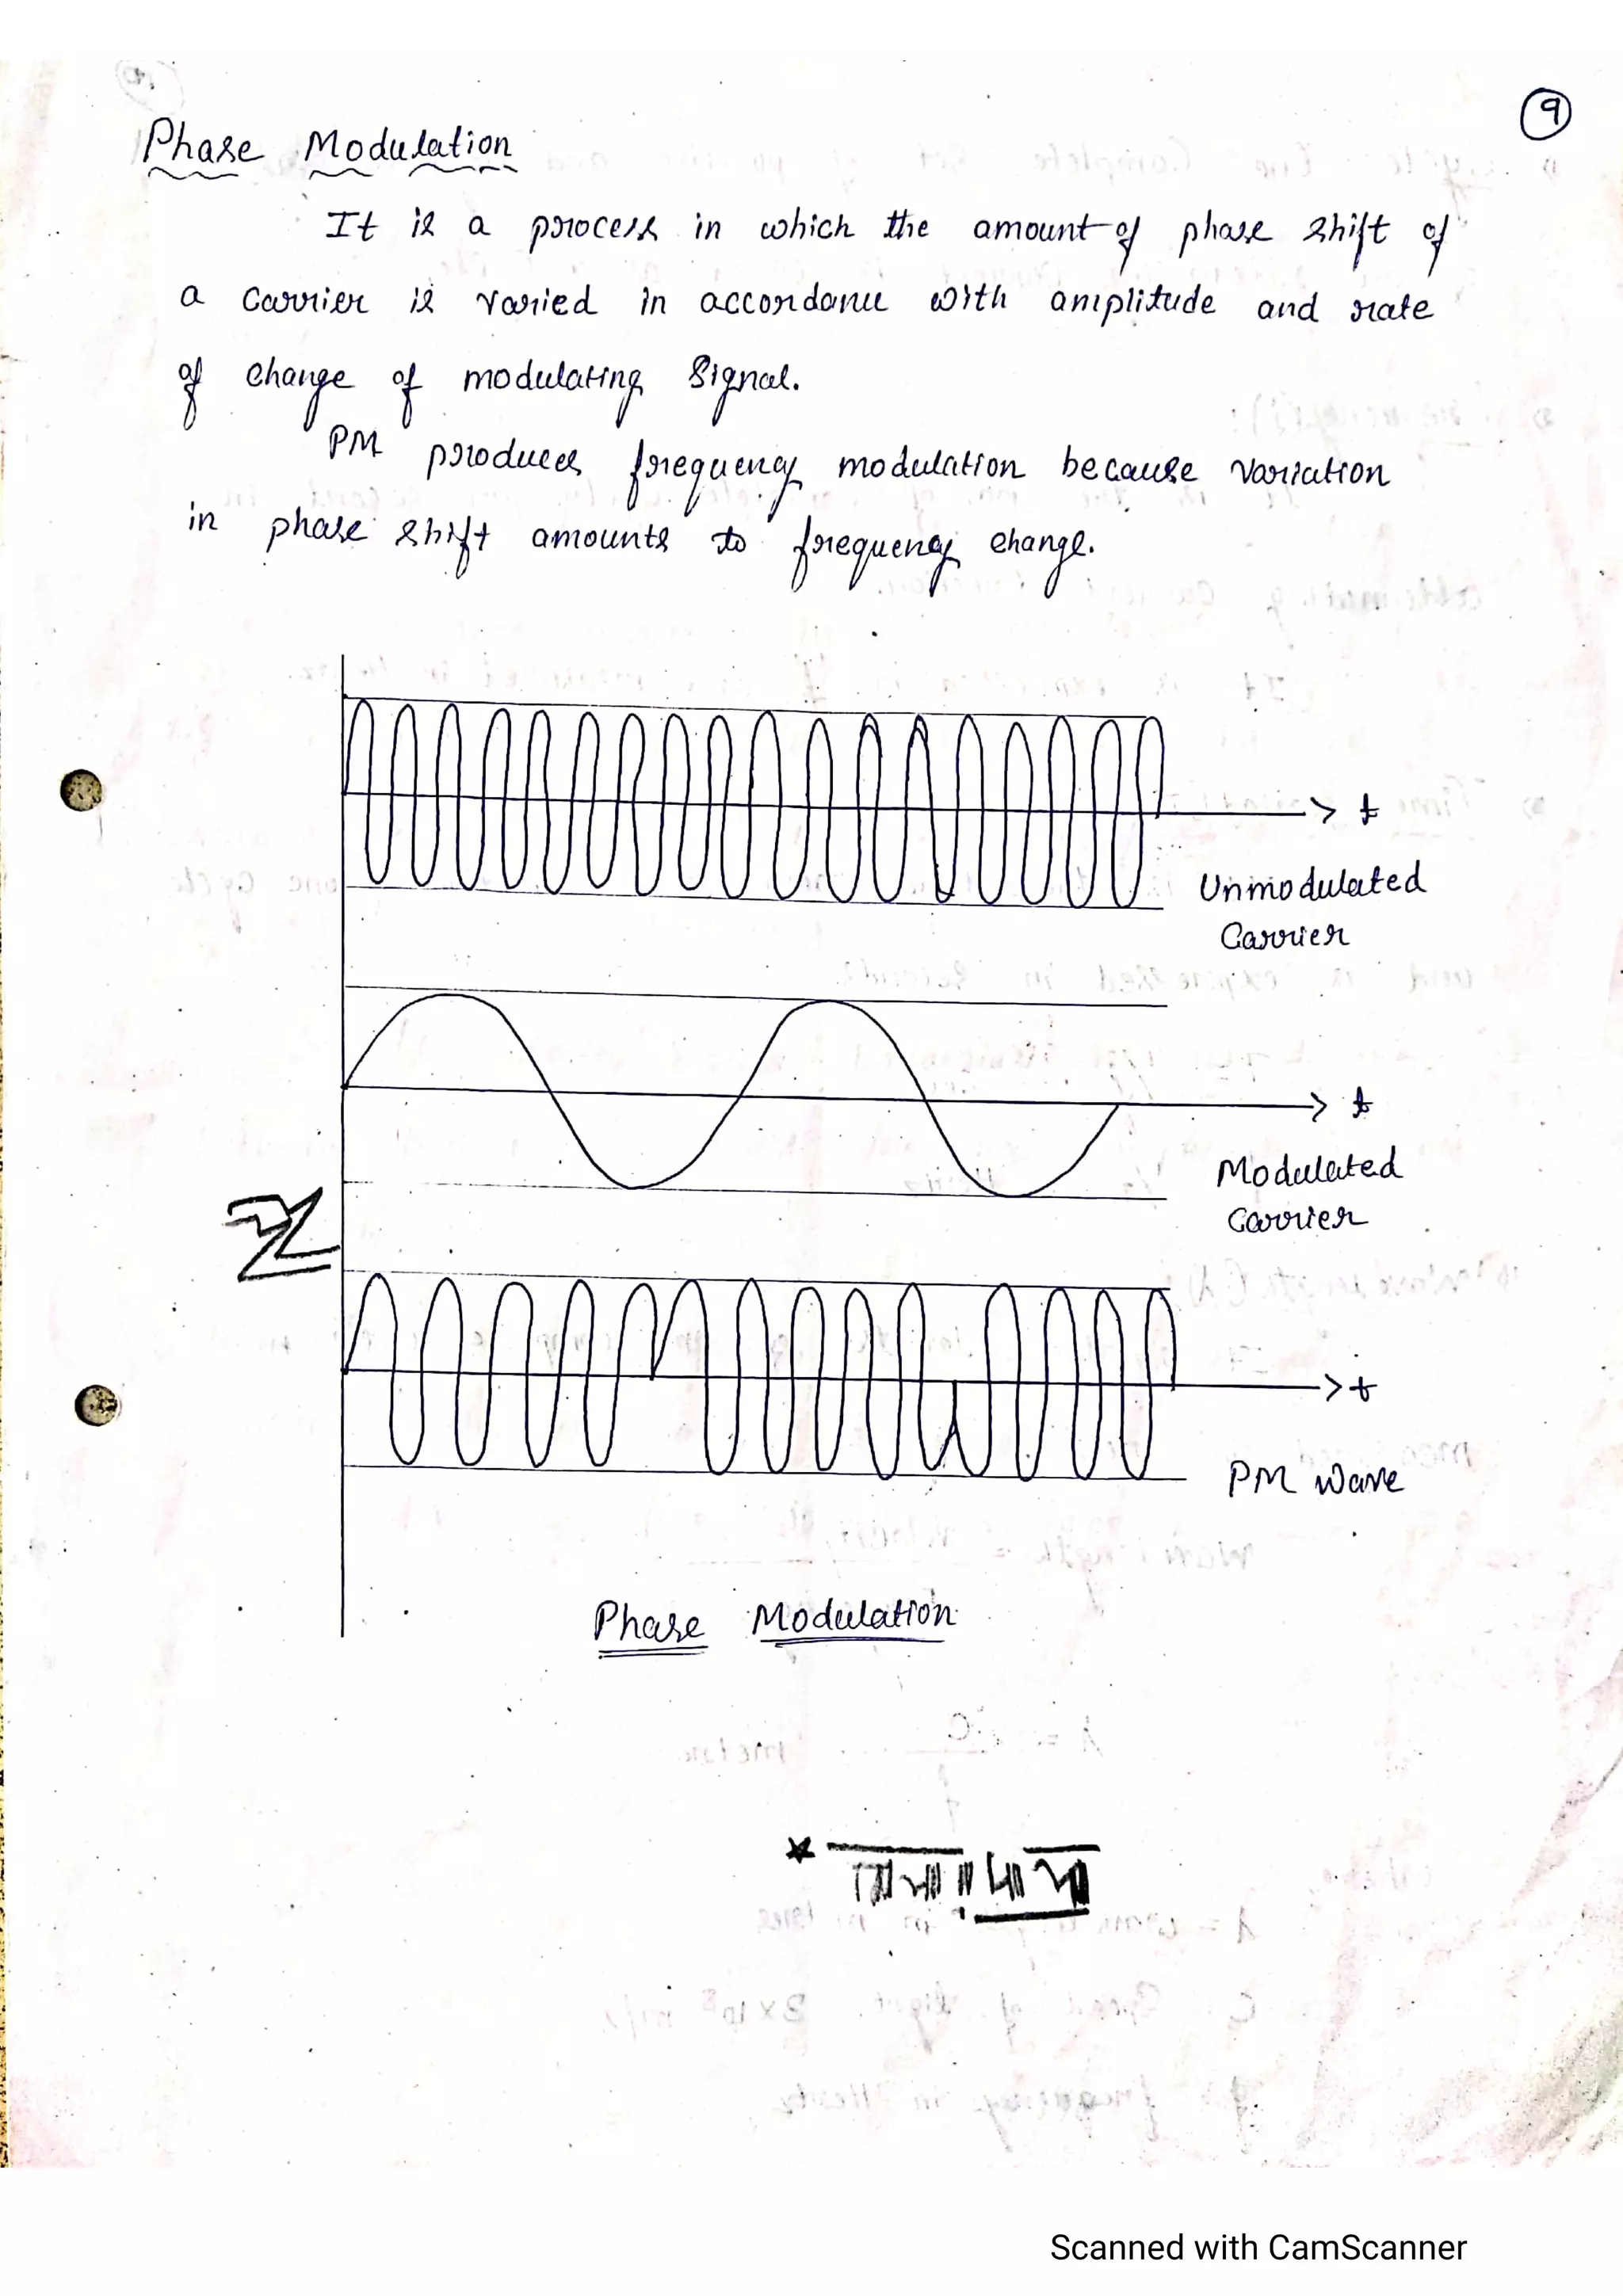 9
Phase Modulation
It is a process in which the amount of phase shift of
a carrier is varied in accordance with amplitude and rate
of change of modulating signal.
PM produces frequency modulation because variation
in phase shift amounts to frequency change.
t
Unmodulated
Carrier
t
Modulated
Carrier
t
PM Wave
Phase Modulation
Scanned with CamScanner